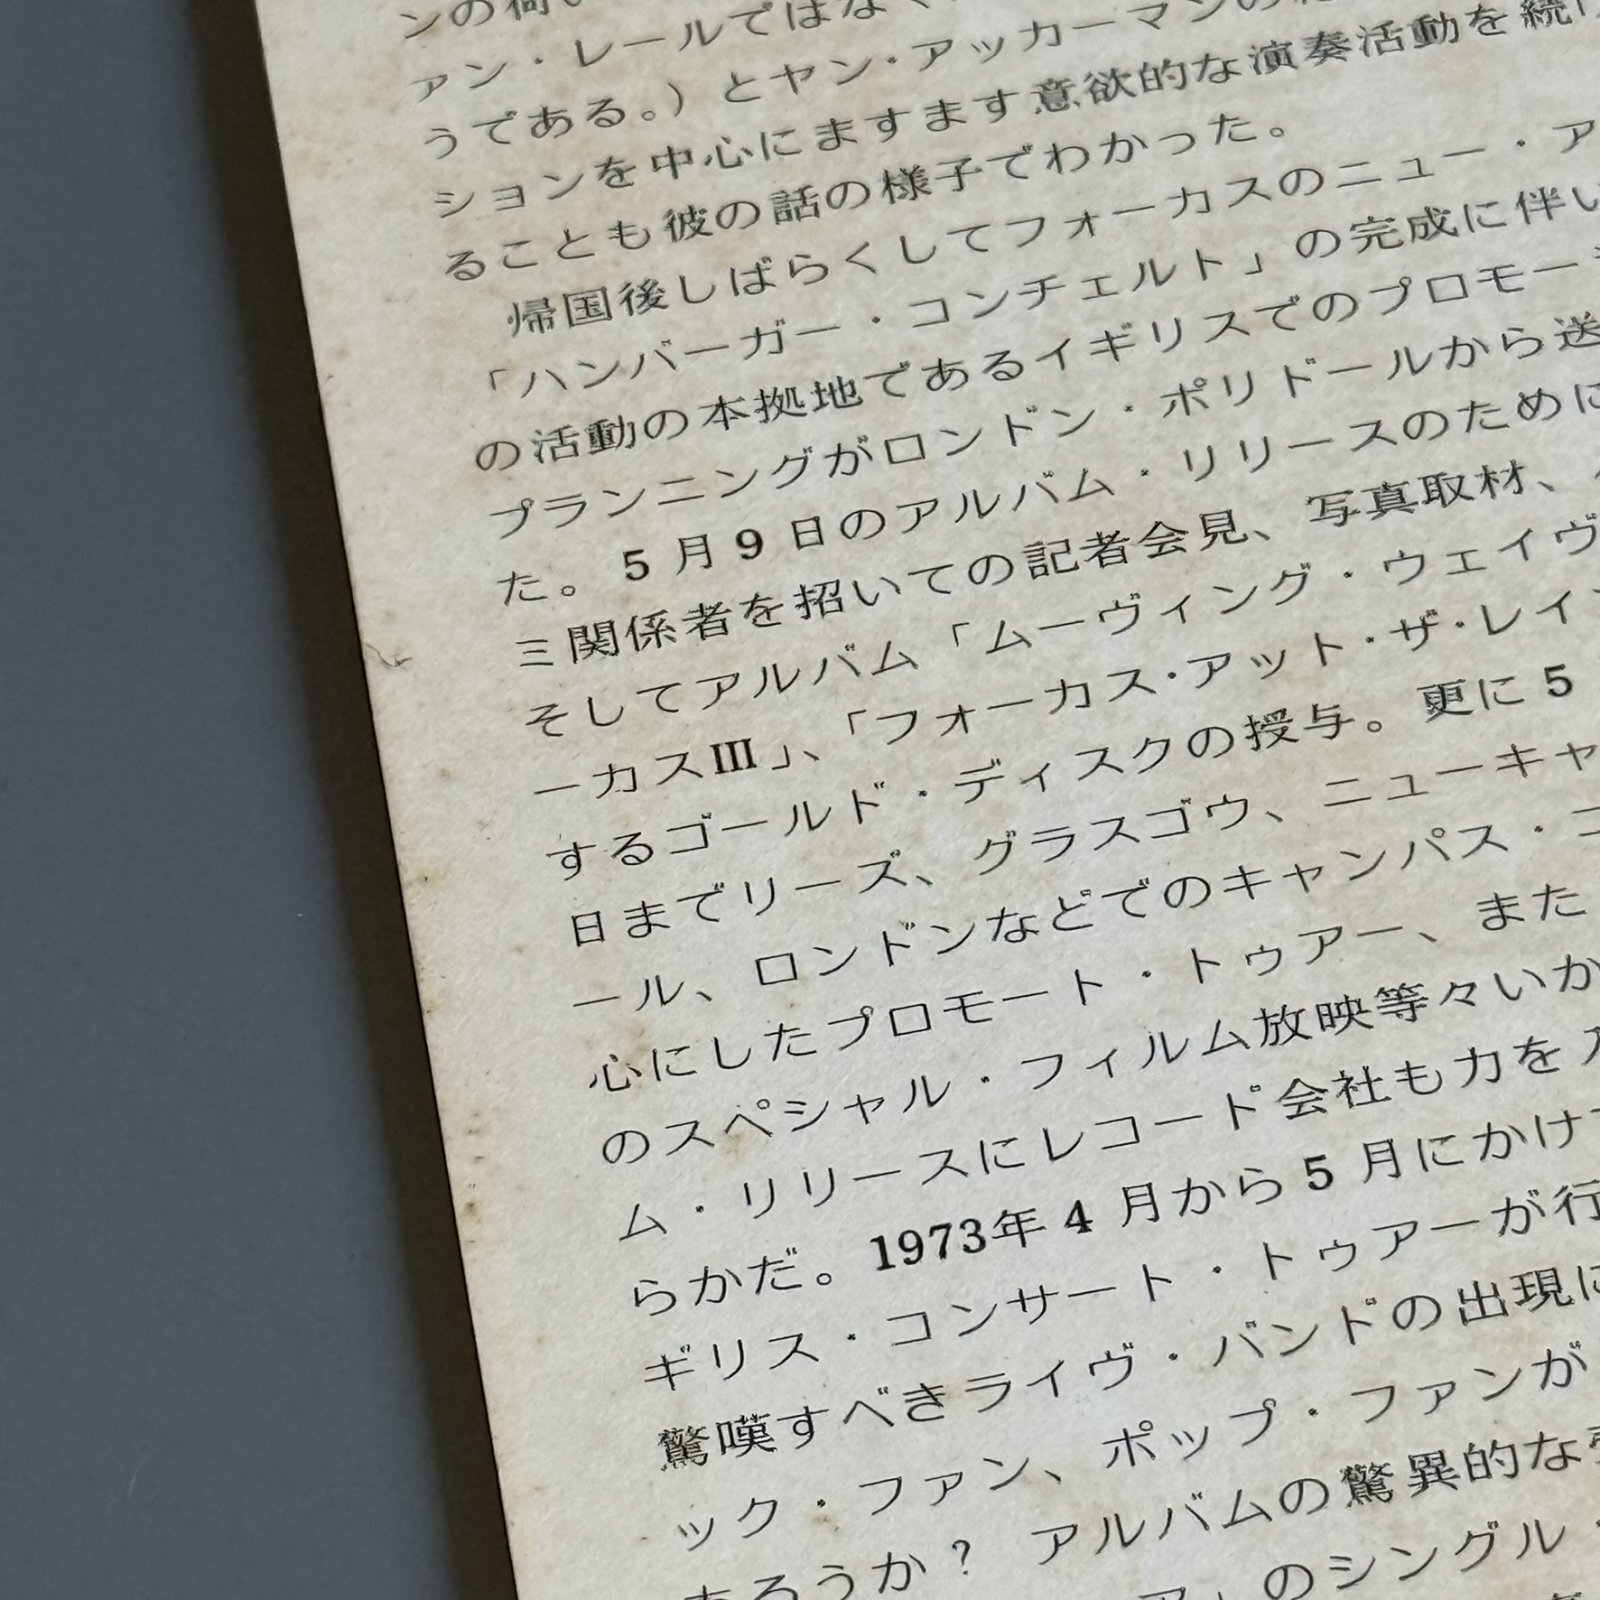 ァン・レールではな
うである。）とヤン・アッカーマンの
ションを中心にますます意欲的な演奏活動を続
ることも彼の話の様子でわかった。
帰国後しばらくしてフォーカスのニュー・ア
「ハンバーガー・コンチェルト」の完成に伴い
の活動の本拠地であるイギリスでのプロモー
プランニングがロンドン・ポリドールから送
た。5月9日のアルバム・リリースのために
三関係者を招いての記者会見、写真取材、
そしてアルバム「ムーヴィング・ウェイヴ
ーカスIII」、「フォーカス・アット・ザ・レイン
するゴールド・ディスクの授与。更に5
日までリーズ、グラスゴウ、ニューキャ
ール、ロンドンなどでのキャンパス・コ
心にしたプロモート・トゥアー、また
のスペシャル・フィルム放映等々いか
ム・リリースにレコード会社も力を
らかだ。1973年4月から5月にかけ
ギリス・コンサート・トゥアーが行
驚嘆すべきライヴ・バンドの出現に
ック・ファン、ポップ・ファンが
あろうか？ アルバムの驚異的な
」のシングル・